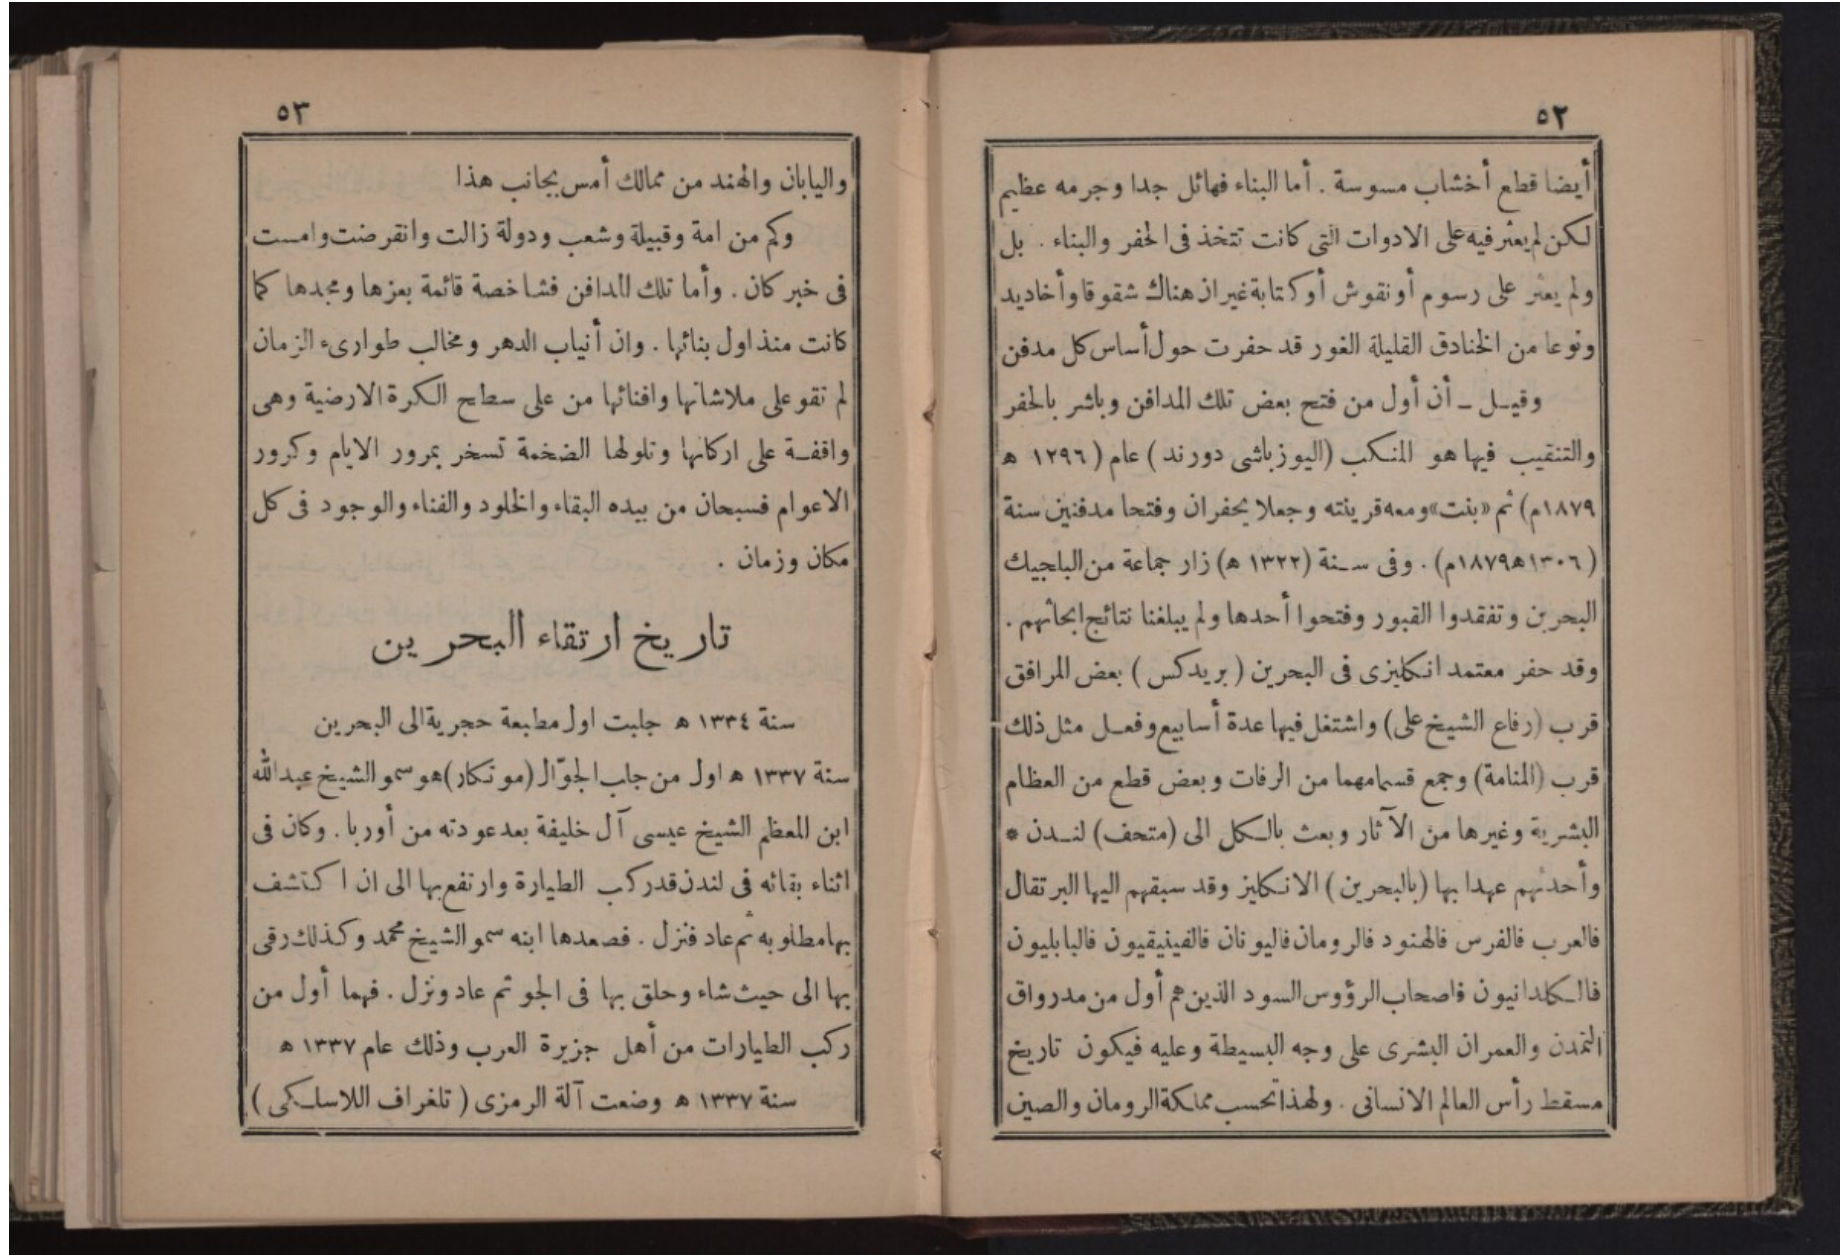 ٥٢
أيضا قطع أخشاب مسوسة . أما البناء فهائل جدا وجرمه عظيم
لكن لم يعثر فيه على الادوات التى كانت تتخذ فى الحفر والبناء . بل
ولم يعثر على رسوم أو نقوش أو كتابة غير ان هناك شقوقا وأخاديد
ونوعا من الخنادق القليلة الغور قد حفرت حول أساس كل مدفن
وقيل ــ أن أول من فتح بعض تلك المدافن وباشر بالحفر
والتنقيب فيها هو المنكب (اليوزباشى دورند) عام (١٢٩٦ ه
١٨٧٩م) ثم «بنت» ومعه قرينته وجعلا يحفران وفتحا مدفنين سنة
(١٣٠٦ه١٨٧٩م) . وفى سنة (١٣٢٢ ه) زار جماعة من البلجيك
البحرين وتفقدوا القبور وفتحوا أحدها ولم يبلغنا نتائج ابحاثهم .
وقد حفر معتمد انكليزى فى البحرين (بريدكس) بعض المرافق
قرب (رفاع الشيخ على) واشتغل فيها عدة أسابيع وفعل مثل ذلك
قرب (المنامة) وجمع قسما مهما من الرفات وبعض قطع من العظام
البشرية وغيرها من الآثار وبعث بالكل الى (متحف) لندن *
وأحدثهم عهدا بها (بالبحرين) الانكليز وقد سبقهم اليها البرتقال
فالعرب فالفرس فالهنود فالرومان فاليونان فالفينيقيون فالبابليون
فالكلدانيون فاصحاب الرؤوس السود الذين هم أول من مد رواق
التمدن والعمران البشرى على وجه البسيطة وعليه فيكون تاريخ
مسقط رأس العالم الانسانى . ولهذا تحسب مملكة الرومان والصين
٥٣
واليابان والهند من ممالك أمس بجانب هذا
وكم من امة وقبيلة وشعب ودولة زالت وانقرضت وامست
فى خبر كان . وأما تلك المدافن فشاخصة قائمة بعزها ومجدها كما
كانت منذ اول بنائها . وان أنياب الدهر ومخالب طوارىء الزمان
لم تقو على ملاشاتها وافنائها من على سطح الكرة الارضية وهى
واقفة على اركانها وتلولها الضخمة تسخر بمرور الايام وكرور
الاعوام فسبحان من بيده البقاء والخلود والفناء والوجود فى كل
مكان وزمان .
تاريخ ارتقاء البحرين
سنة ١٣٣٤ ه جلبت اول مطبعة حجرية الى البحرين
سنة ١٣٣٧ ه اول من جاب الجوّال (موتكار) هو سمو الشيخ عبدالله
ابن المعظم الشيخ عيسى آل خليفة بعد عودته من أوربا . وكان فى
اثناء بقائه فى لندن قد ركب الطيارة وارتفع بها الى ان اكتشف
بها مطلوبه ثم عاد فنزل . فصعدها ابنه سمو الشيخ محمد وكذلك رقى
بها الى حيث شاء وحلق بها فى الجو ثم عاد ونزل . فهما أول من
ركب الطيارات من أهل جزيرة العرب وذلك عام ١٣٣٧ ه
سنة ١٣٣٧ ه وضعت آلة الرمزى (تلغراف اللاسلكى)